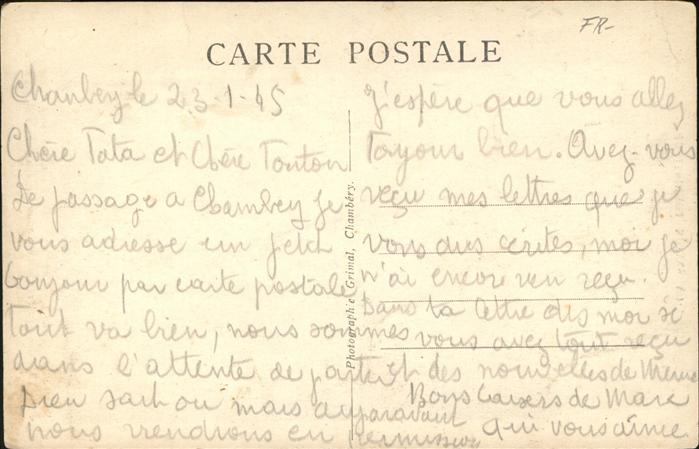 FR-
CARTE POSTALE
Chanbey le 23-1-45
Chère Tata et Chère Tonton
De passage a Chambey je
vous adresse un petit
bonjour par carte postale
tout va bien, nous sommes
dans l'attente de partir
Dieu sait ou mais auparavant
nous viendrons en permission
J'espère que vous allez
Toujour bien. Avez-vous
reçu mes lettres que je
vous aus écrites, moi je
n'ai encore rien reçu.
Dans ta lettre dis moi si
vous avez tout reçu
et des nouvelles de
Bons baisers de Marc
qui vous aime
Photographie Grimal, Chambéry.